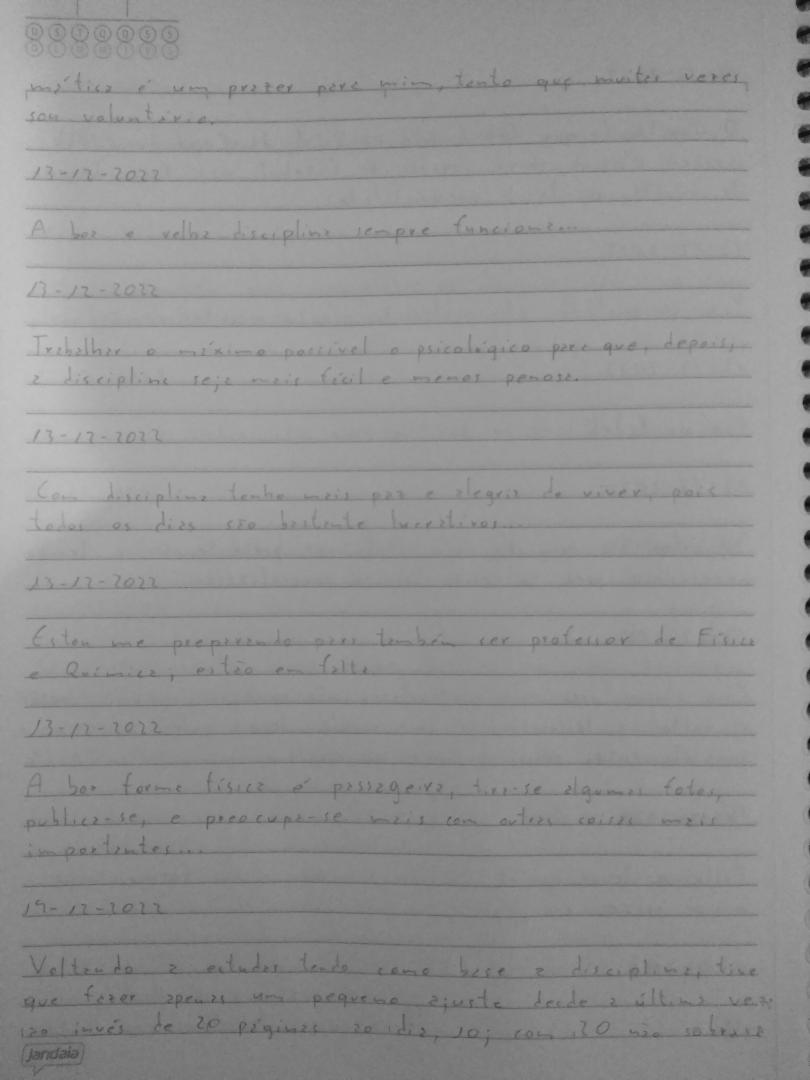 D S T Q Q S S
D L M M J V S
mática é um prazer para mim, tanto que muitas vezes,
sou voluntário.
13-12-2022
A boa e velha disciplina sempre funciona...
13-12-2022
Trabalhar o máximo possível o psicológico para que, depois,
a disciplina seja mais fácil e menos penosa.
13-12-2022
Com disciplina tenho mais paz e alegria de viver, pois
todos os dias são bastante lucrativos...
13-12-2022
Estou me preparando para também ser professor de Física
e Química, estão em falta.
13-12-2022
A boa forma física é passageira, tira-se algumas fotos,
publica-se, e preocupa-se mais com outras coisas mais
importantes...
14-12-2022
Voltando a estudar tendo como base a disciplina, tive
que fazer apenas um pequeno ajuste desde a última vez:
ao invés de 20 páginas ao dia, 10; com 20 não sobrava
jandaia